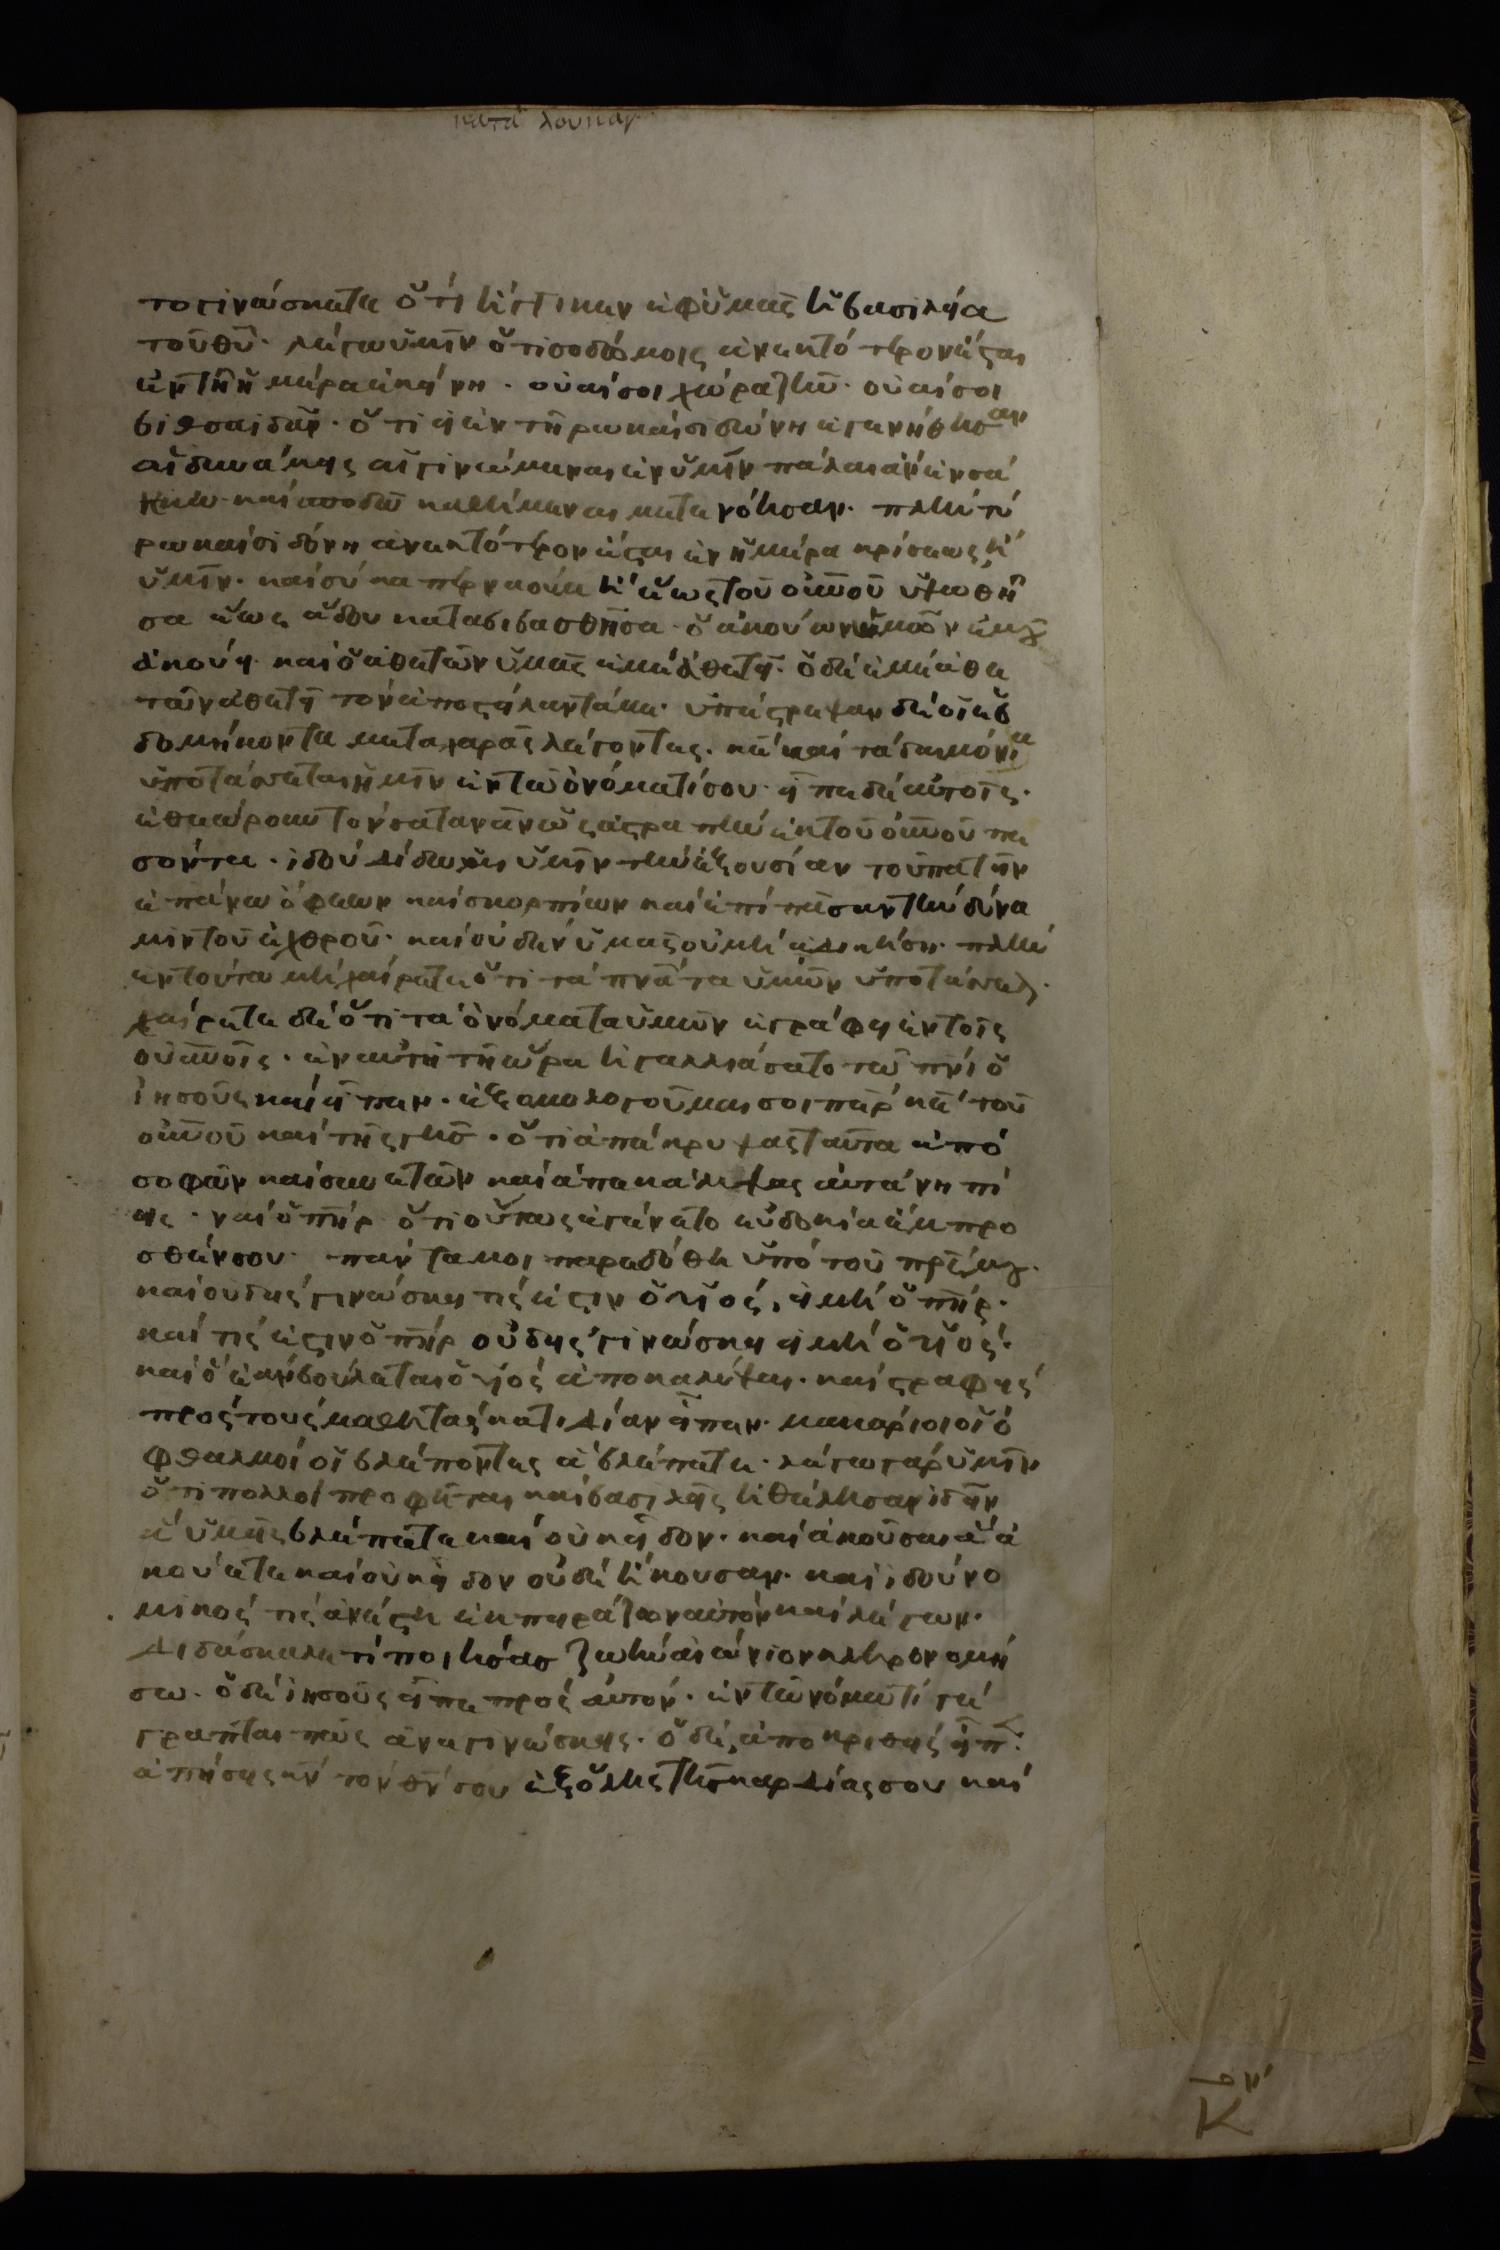 κατὰ λουκαν
το γινώσκετε ὅτι ἤγγικεν ἐφ ὑμᾶς ἡ βασιλεία
τοῦ θῦ. λέγω ὑμῖν ὅτι σοδόμοις ἀνεκτότερον ἔσται
ἐν τῆ ἡμέρα ἐκείνη. οὐαί σοι χώραζιν. οὐαί σοι
βιθσαιδὰν. ὅτι εἰ ἐν τῆρω καί σιδώνη ἐγενήθησαν
αἱ δυνάμεις αἱ γινώμεναι ἐν ὑμῖν πάλαι ἂν ἐν σά
κκω καί σποδῶ καθήμεναι μετανόησαν. πλήν τύ
ρω καί σιδόνη ἀνεκτότερον ἔσται ἐν ἡμέρα κρίσεως ἤ
ὑμῖν. καί σύ καπερναούμ ἡ ἕως τοῦ οὐνοῦ ὑψωθῆ
σα ἕως ἅδου καταβιβασθῆσα. ὁ ἀκούων ὑμῶν ἐμοῦ
ἀκούει. καί ὁ ἀθετῶν ὑμᾶς ἐμέ ἀθετεῖ. ὁ δέ ἐμέ ἀθε
τῶν ἀθετεῖ τόν ἀποστείλαντά με. ὑπέστρεψαν δέ οἱ ἑβ
δομήκοντα μετα χαρᾶς λέγοντες. κε καί τά δαιμόνια
ὑποτάσσεται ἡμῖν ἐν τῶ ὀνόματί σου. εἶπε δέ αὐτοῖς.
ἐθεώρουν τόν σατανᾶν ὡς ἀστραπήν ἐκ τοῦ οὐνοῦ πε
σόντα. ἰδού δίδωμι ὑμῖν τήν ἐξουσίαν τοῦ πατεῖν
ἐπάνω ὄφεων καί σκορπίων καί ἐπί πᾶσαν τήν δύνα
μιν τοῦ ἐχθροῦ. καί οὐδέν ὑμᾶς οὐ μή ἀδικήση. πλήν
ἐν τούτω μή χαίρετε ὅτι τά πνα τα ὑμῶν ὑποτάσσεται.
χαίρετε δέ ὅτι τα ὀνόματα ὑμῶν ἐγράφη ἐν τοῖς
οὐνοῖς. ἐν αὐτῆ τῆ ὥρα ἠγαλλιάσατο τῶ πνι ὁ
ἰησοῦς καί εἶπεν. ἐξομολογοῦμαι σοι περ κε τοῦ
οὐνοῦ καί τῆς γῆσ. ὅτι ἀπέκρυψας ταῦτα ἀπό
σοφῶν καί συνετῶν καί ἀπεκάλυψας αὐτα νηπί
οις. ναί ὁ πηρ ὅτι οὕτως ἐγένετο εὐδοκία ἔμπρο
σθέν σου. πάντα μοι παρεδόθη ὑπό τοῦ πρς μου.
καί οὐδείς γινώσκει τίς ἐστιν ὁ υἱός, εἰ μή ὁ πηρ.
καί τίς ἐστιν ὁ πηρ οὐδείς γινώσκει εἰ μή ὁ υἱός.
καί ὧ ἐάν βούλεται ὁ υἱός ἀποκαλύψαι. καί στραφείς
πρός τούς μαθητάς κατ ιδίαν εἶπεν. μακάριοι οἱ ὀ
φθαλμοί οἱ βλέποντες ἅ βλέπετε. λέγω γάρ ὑμῖν
ὅτι πολλοί προφῆται καί βασιλεῖς ἠθέλησαν ἰδεῖν
ἅ ὑμεῖς βλέπετε καί οὐκ εἶδον. καί ἀκοῦσαι ἅ ἀ
κούετε καί οὐκ εἶδον οὐδέ ἤκουσαν. καί ἰδού νο
μικός τις ἀνέστη ἐκπειράζων αὐτόν καί λέγων.
διδάσκαλε τί ποιήσασ ζωήν αἰώνιον κληρονομή
σω. ὁ δέ ἰησοῦς εἶπε πρός αὐτόν. ἐν τῶ νόμω τί γέ
γραπται πῶς ἀναγινώσκεις. ὁ δέ ἀποκριθείς εἶπε.
ἀγαπήσεις κν τόν θν σου ἐξ ὅλης τῆς καρδίας σου καί